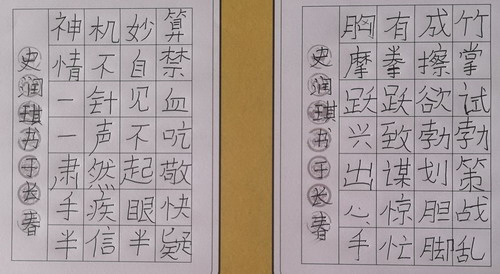 神机妙算
情不自禁
一针见血
一声不吭
肃然起敬
手疾眼快
半信半疑
史润琪书于长春
胸有成竹
摩拳擦掌
跃跃欲试
兴致勃勃
出谋划策
心惊胆战
手忙脚乱
史润琪书于长春